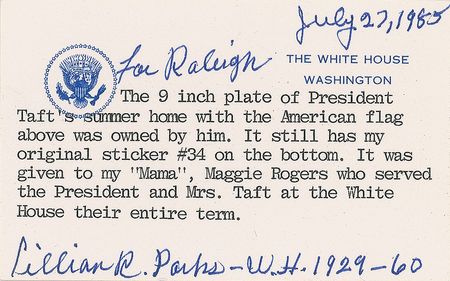 July 27, 1985
For Raleigh
THE WHITE HOUSE
WASHINGTON
The 9 inch plate of President
Taft's summer home with the American flag
above was owned by him. It still has my
original sticker #34 on the bottom. It was
given to my "Mama", Maggie Rogers who served
the President and Mrs. Taft at the White
House their entire term.
Lillian R. Parks - W.H. 1929-60